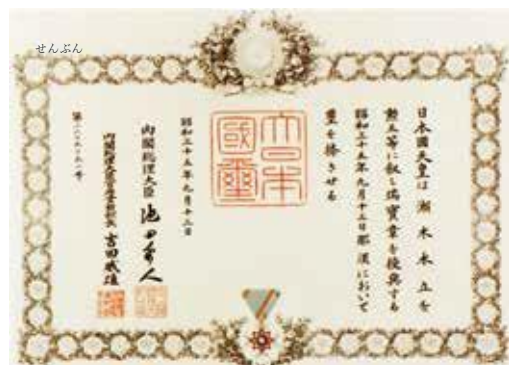 せんぶん
日本國天皇は瀬木本立を
勲五等に叙し瑞寶章を授與する
昭和三十五年九月十三日那須において
璽を捺させる
大日本國璽
昭和三十五年九月十三日
内閣総理大臣 池田勇人
内閣総理大臣官房賞勲部長 吉田威雄